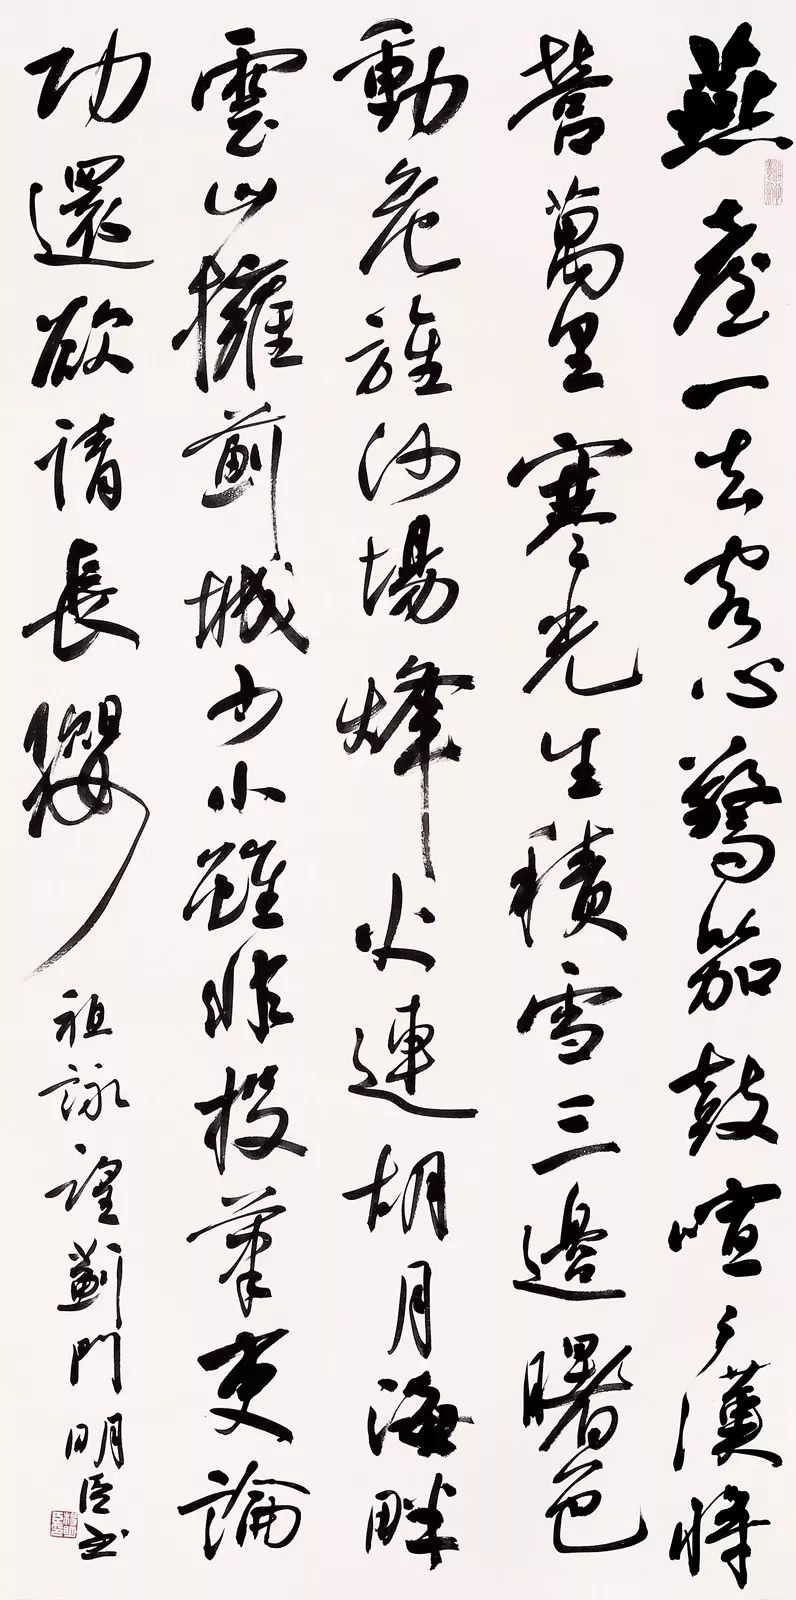 燕臺一去客心驚笳鼓喧々漢將
營萬里寒光生積雪三邊曙色
動危旌沙場烽火連胡月海畔
雲山擁薊城少小雖非投筆吏論
功還欲請長纓 祖詠望薊門 明臣书